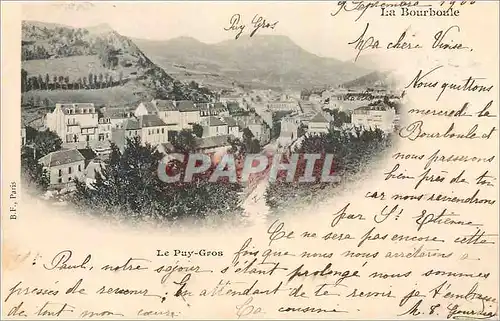 La Bourboule
9 Septembre 1900
Puy Gros
Ma chère Vinse.
Nous quittons
mercredi la
Bourboule et
nous passerons
bien près de toi
car nous reviendrons
par St Etienne
Ce ne sera pas encore cette
fois que nous nous arrêterons à
St Paul, notre séjour s'étant prolongé nous sommes
pressés de revenir. En attendant de te revoir je t'embrasse
de tout mon cœur. Ta cousine. M. E.
Le Puy-Gros
CPARHAMA.COM
B. F., Paris